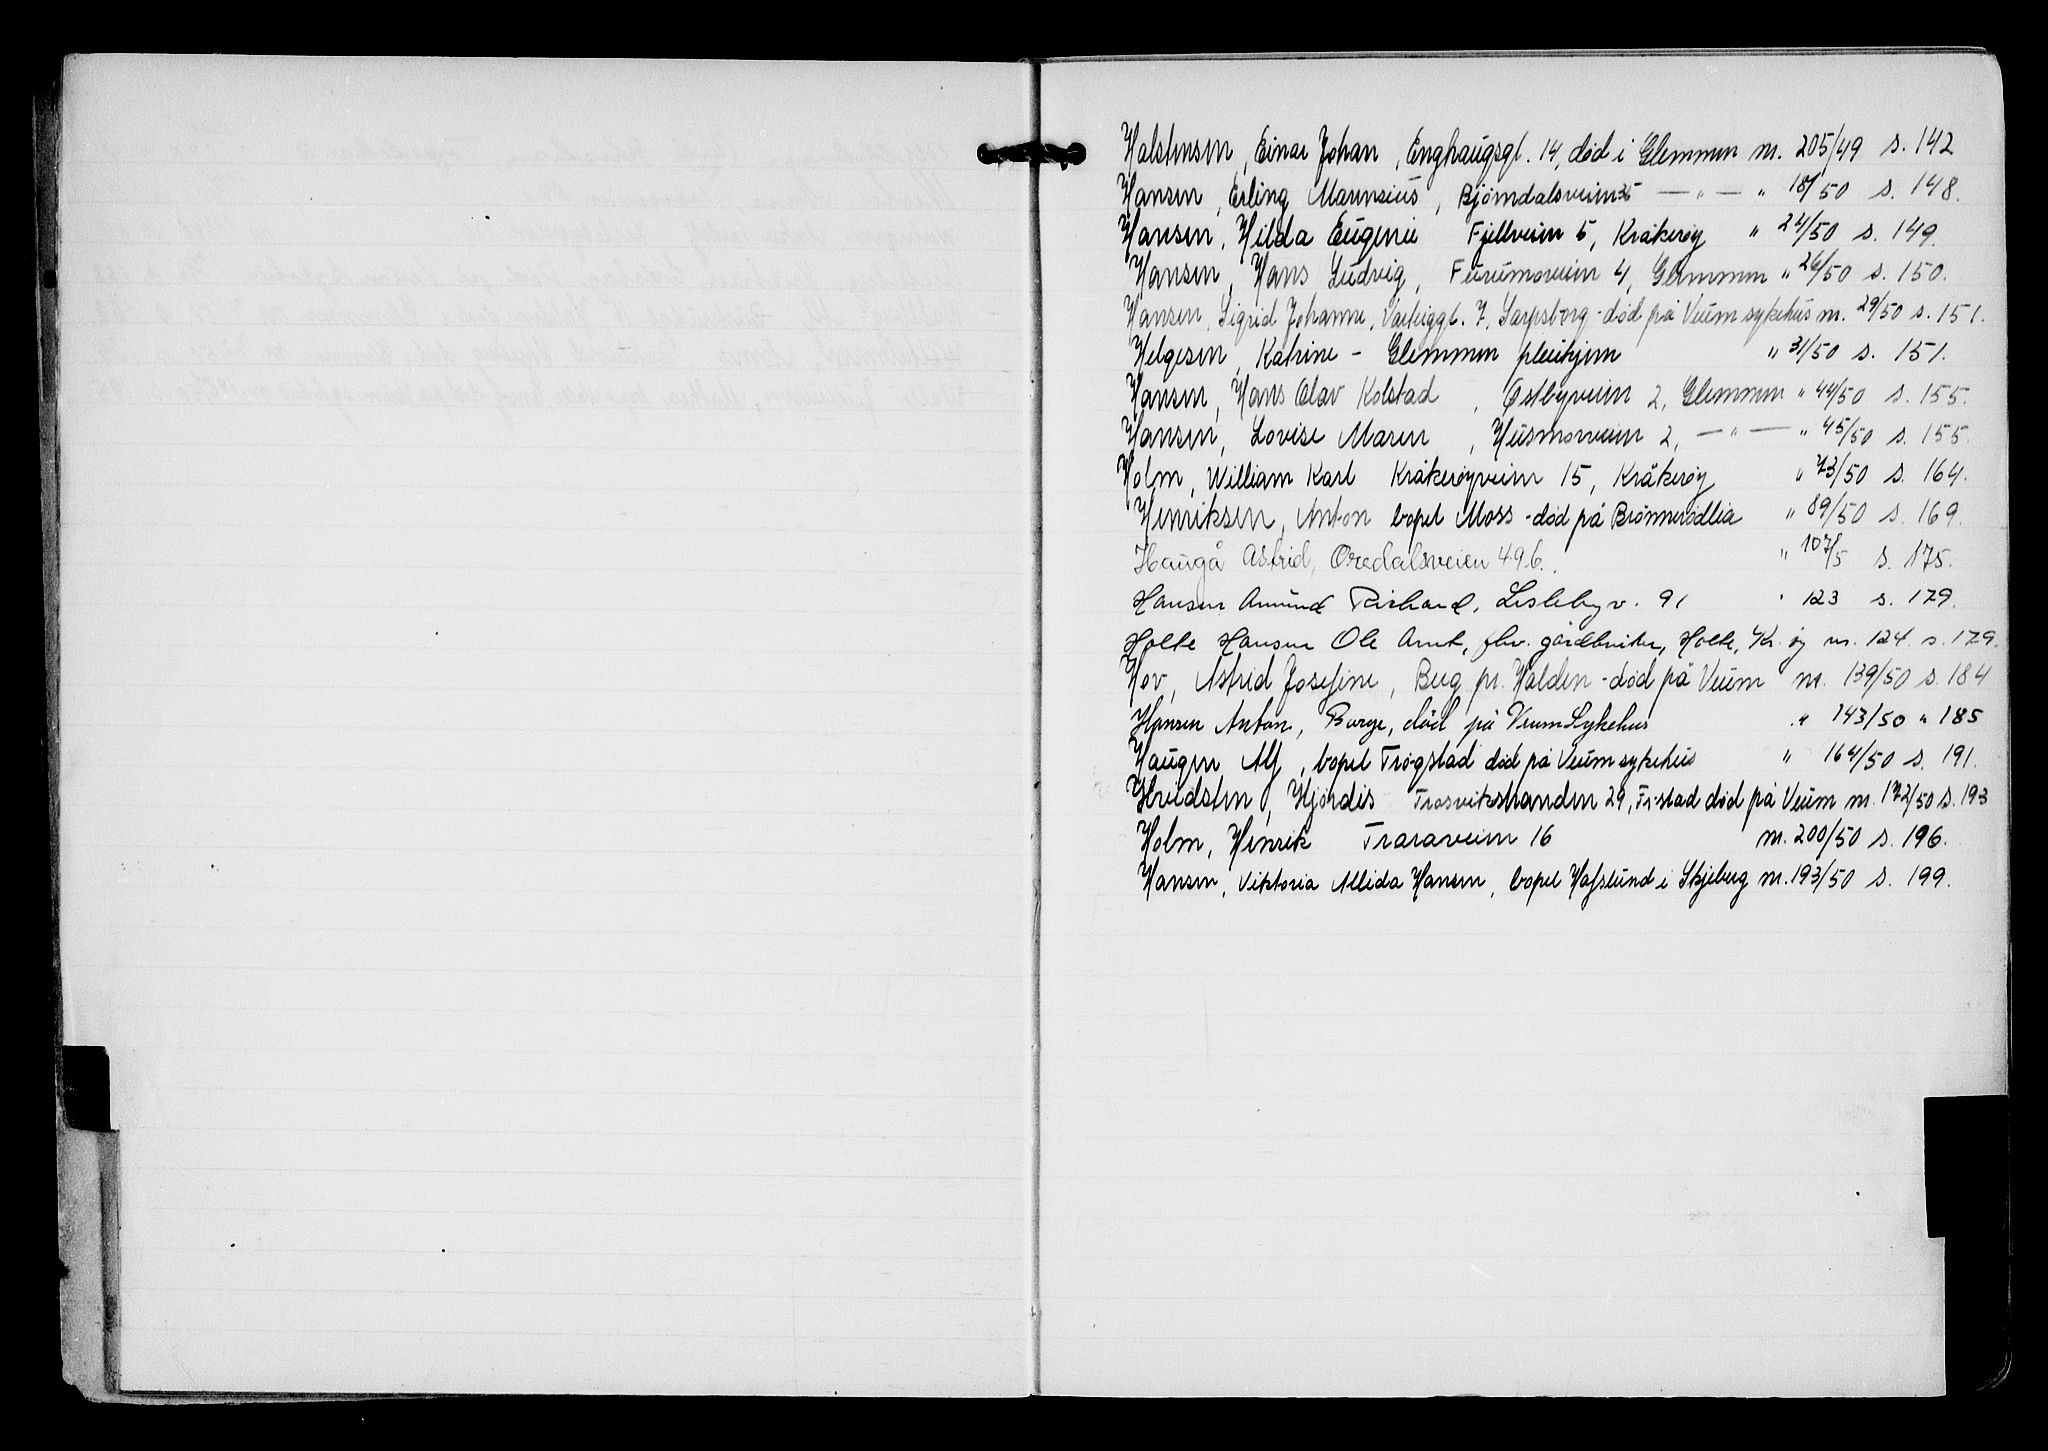 Halstensen, Einar Johan, Enghaugsgt. 14, død i Glemmen nr. 205/49 s. 142
Hansen, Erling Marensius, Bjørndalsveien 25 — " — " 18/50 s. 148.
Hansen, Hilda Eugenie Fjellveien 5, Kråkerøy " 24/50 s. 149.
Hansen, Hans Ludvig, Furumoveien 4, Glemmen " 26/50 s. 150.
Hansen, Sigrid Johanne, 7, Sarpsborg - død på Veum sykehus nr. 29/50 s. 151.
Helgesen, Katrine - Glemmen pleiehjem " 31/50 s. 151.
Hansen, Hans Olav Kolstad, Østbyveien 2, Glemmen " 44/50 s. 155.
Hansen, Lovise Maren, Husmorveien 2, — " — " 45/50 s. 155.
Holm, William Karl Kråkerøyveien 15, Kråkerøy " 73/50 s. 164.
Henriksen, Anton bopel Moss - død på Brønnerødlia " 89/50 s. 169.
Haugå Astrid, Oredalsveien 496. " 107/5 s. 175.
Hansen Amund Richard, Lislebyv. 91 " 123 s. 179.
Holte Hansen Ole Arnt, fhv. gårdbruker, Holte, Kr.øy nr. 124 s. 179.
Hov, Astrid Josefine, Berg pr. Halden - død på Veum nr. 139/50 s. 184
Hansen Anton, Borge, død på Veum Sykehus " 143/50 " 185
Haugen Alf, bopel Trøgstad død på Veum sykehus " 164/50 s. 191.
Hvidsten, Hjørdis Trosvikstranden 29, Fr.stad død på Veum nr. 172/50 s. 193
Holm, Henrik Traraveien 16 nr. 200/50 s. 196.
Hansen, Viktoria Allida Hansen, bopel Hafslund i Skjeberg nr. 193/50 s. 199.